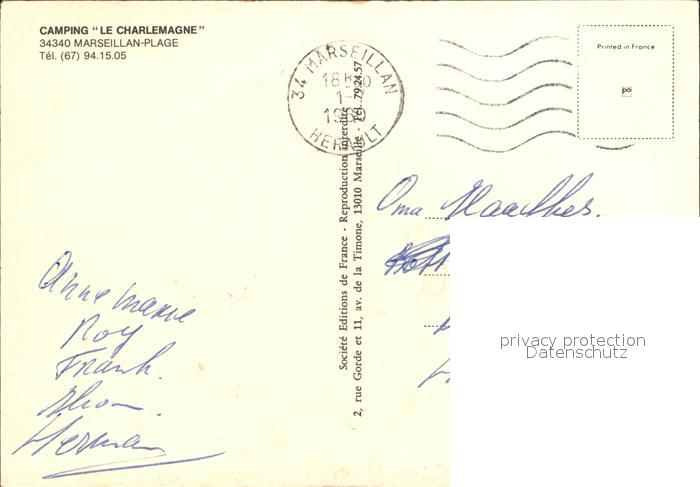 CAMPING "LE CHARLEMAGNE"
34340 MARSEILLAN-PLAGE
Tél. (67) 94.15.05
34 MARSEILLAN
18 H
1-
HERAULT
Printed in France
Société Editions de France - Reproduction interdite
2, rue Gorde et 11, av. de la Timone, 13010 Marseille - Tél. 79.24.57
Oma
Annemarie
Roy
Frank.
Herman
privacy protection
Datenschutz